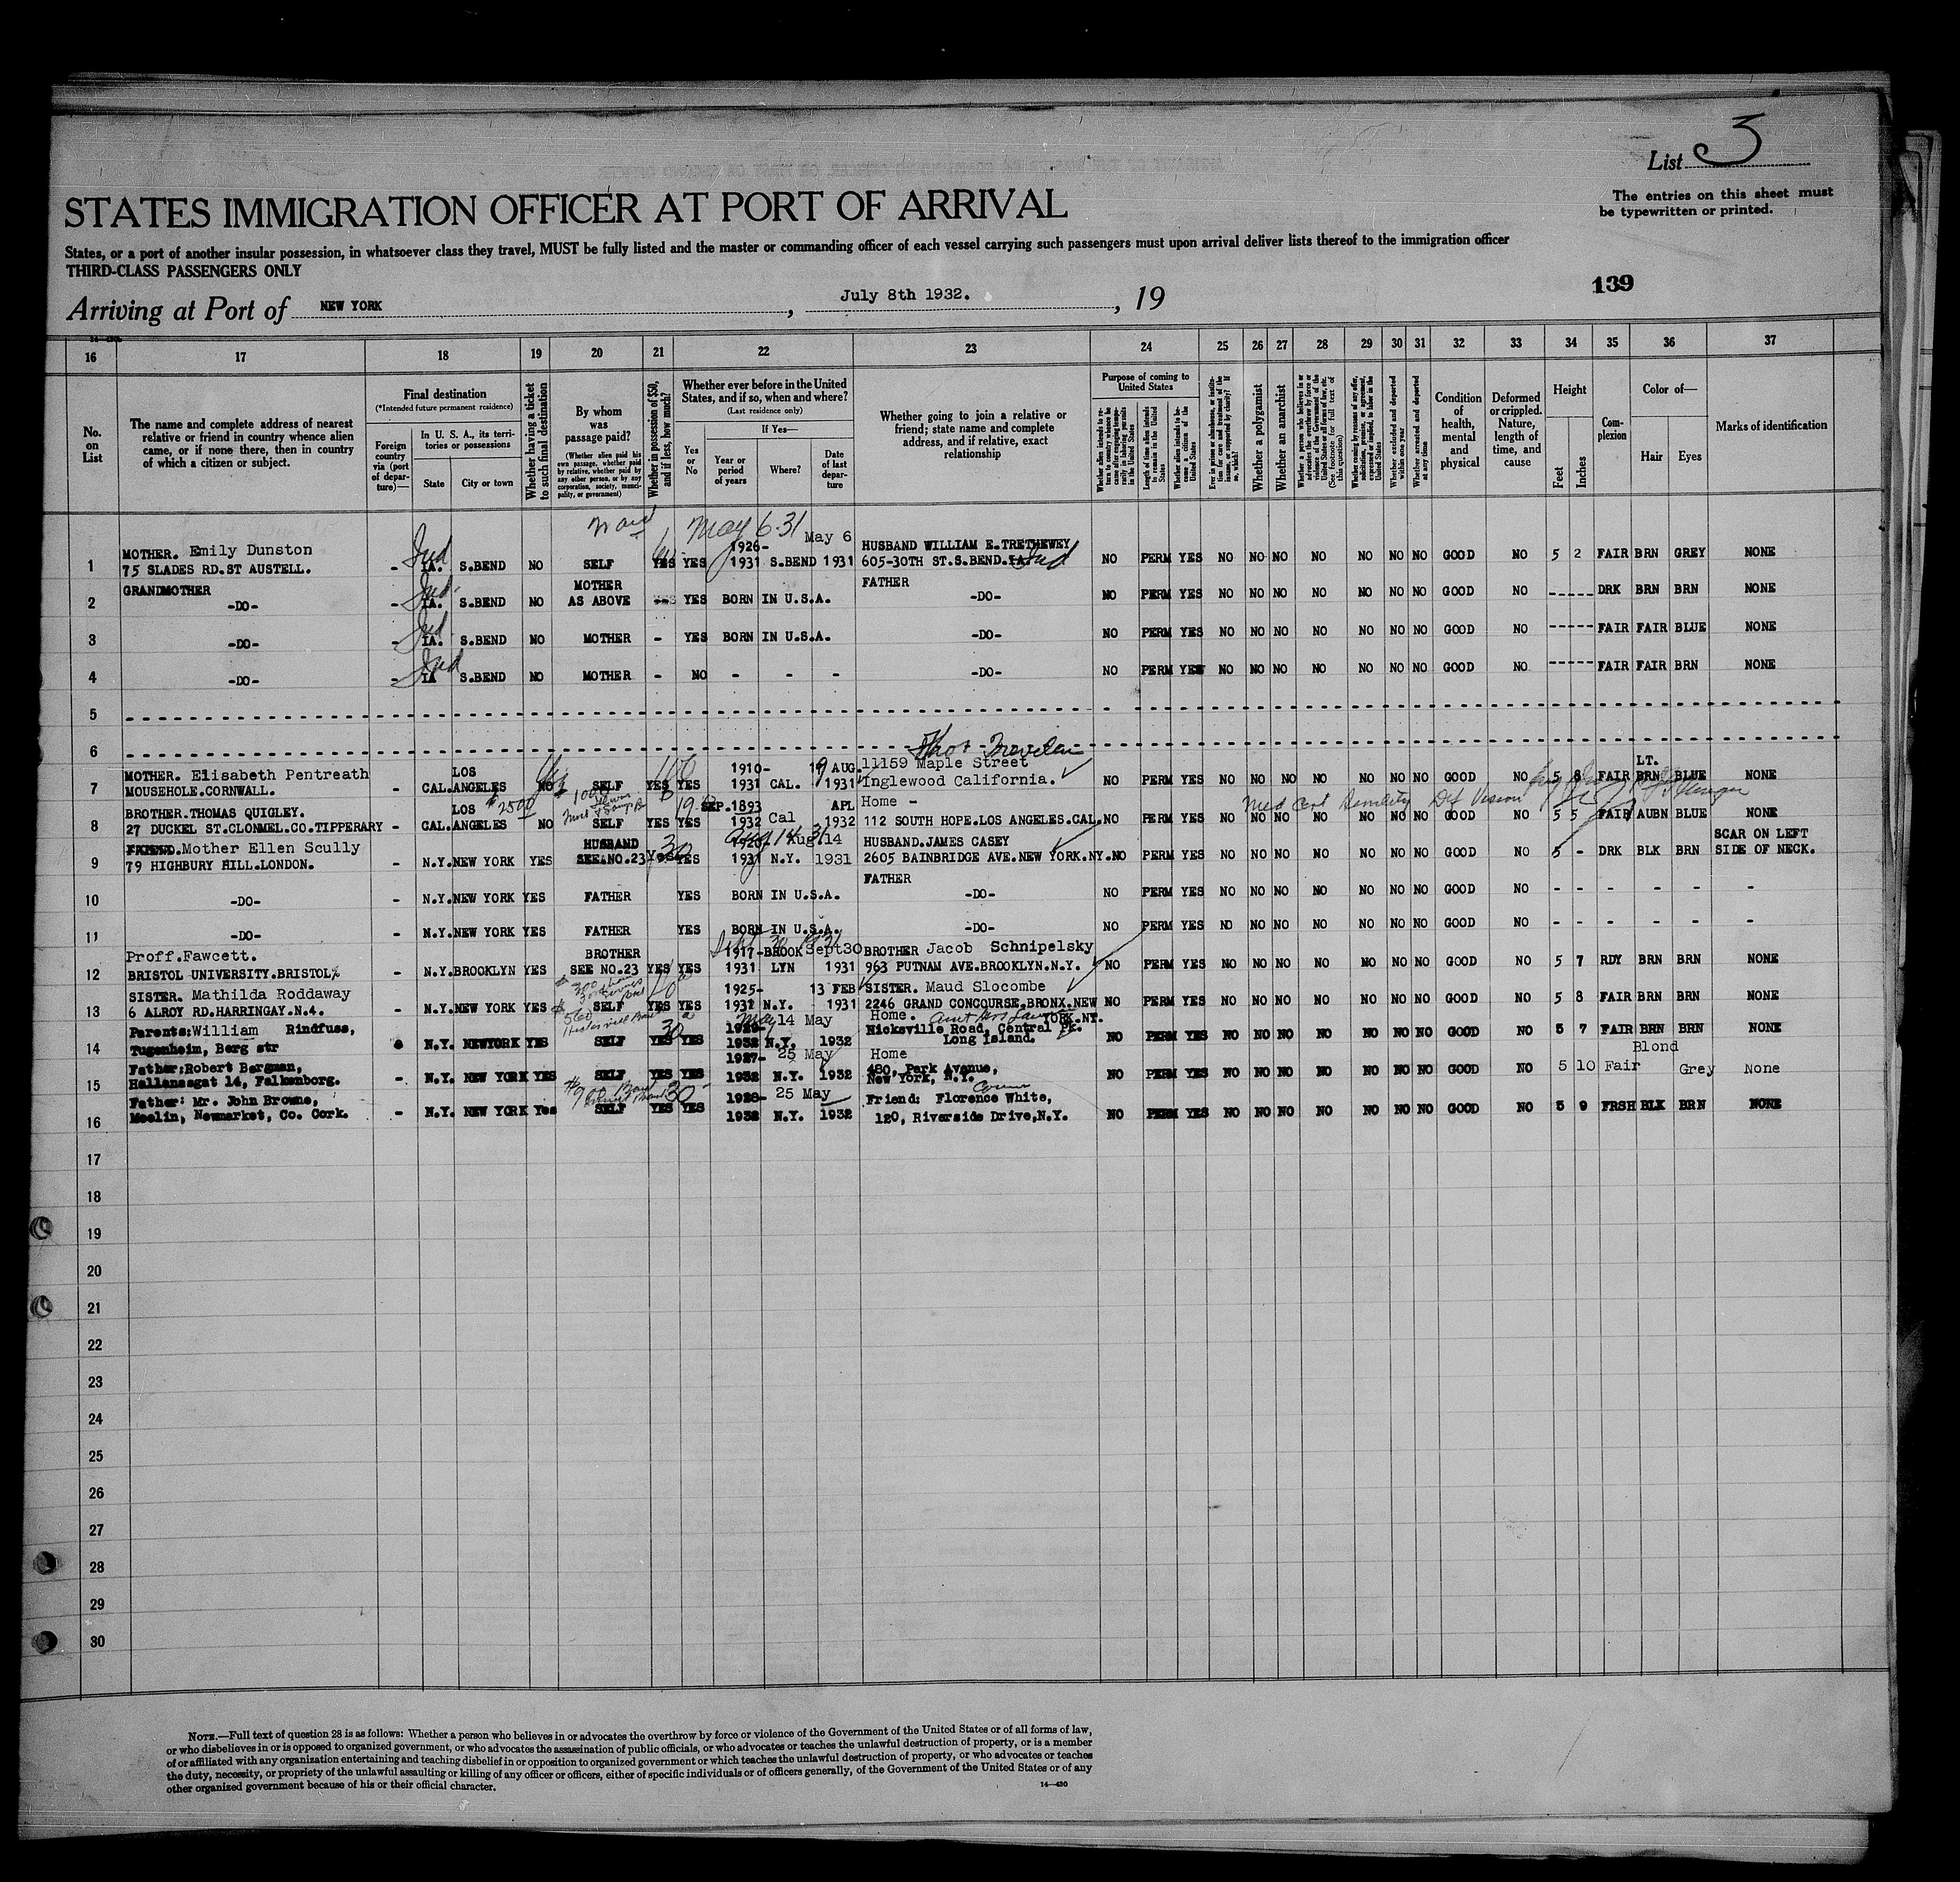 List 3
The entries on this sheet must
be typewritten or printed.
STATES IMMIGRATION OFFICER AT PORT OF ARRIVAL
States, or a port of another insular possession, in whatsoever class they travel, MUST be fully listed and the master or commanding officer of each vessel carrying such passengers must upon arrival deliver lists thereof to the immigration officer
THIRD-CLASS PASSENGERS ONLY
139
Arriving at Port of NEW YORK, July 8th 1932., 19
16 17 18 19 20 21 22 23 24 25 26 27 28 29 30 31 32 33 34 35 36 37
No. on List
The name and complete address of nearest relative or friend in country whence alien came, or if none there, then in country of which a citizen or subject.
Final destination
(*Intended future permanent residence)
Foreign country via (port of departure)—
In U. S. A., its territories or possessions
State
City or town
Whether having a ticket to such final destination
By whom was passage paid?
(Whether alien paid his own passage, whether paid by relative, whether paid by any other person, or by any corporation, society, municipality, or government)
Whether in possession of $50, and if less, how much?
Whether ever before in the United States, and if so, when and where?
(Last residence only)
Yes or No
If Yes—
Year or period of years
Where?
Date of last departure
Whether going to join a relative or friend; state name and complete address, and if relative, exact relationship
Purpose of coming to United States
Whether alien intends to return to country whence he came after engaging temporarily in laboring pursuits in the United States
Length of time alien intends to remain in the United States
Whether alien intends to become a citizen of the United States
Ever in prison or almshouse, or institution for care and treatment of the insane, or supported by charity? If so, which?
Whether a polygamist
Whether an anarchist
Whether a person who believes in or advocates the overthrow by force or violence of the Government of the United States or all forms of law, etc. (See footnote for full text of this question)
Whether coming by reason of any offer, solicitation, promise, or agreement, expressed or implied, to labor in the United States
Whether excluded and deported within one year
Whether arrested and deported at any time
Condition of health, mental and physical
Deformed or crippled. Nature, length of time, and cause
Height
Feet
Inches
Complexion
Color of—
Hair
Eyes
Marks of identification
May 6-31
MOTHER. Emily Dunston 1926- May 6 HUSBAND WILLIAM E. TRETHEWEY
1 75 SLADES RD.ST AUSTELL. - IA. Ind S.BEND NO SELF YES YES 1931 S.BEND 1931 605-30TH ST.S.BEND.IA Ind NO PERM YES NO NO NO NO NO NO NO GOOD NO 5 2 FAIR BRN GREY NONE
GRANDMOTHER MOTHER FATHER
2 -DO- - IA. Ind S.BEND NO AS ABOVE YES YES BORN IN U.S.A. -DO- NO PERM YES NO NO NO NO NO NO NO GOOD NO ----- DRK BRN BRN NONE
3 -DO- - IA. Ind S.BEND NO MOTHER - YES BORN IN U.S.A. -DO- NO PERM YES NO NO NO NO NO NO NO GOOD NO ----- FAIR FAIR BLUE NONE
4 -DO- - IA Ind S.BEND NO MOTHER - NO - - - -DO- NO PERM YES NO NO NO NO NO NO NO GOOD NO ----- FAIR FAIR BRN NONE
5
6
MOTHER. Elisabeth Pentreath LOS 1910- 19 AUG 11159 Maple Street LT.
7 MOUSEHOLE.CORNWALL. CAL.ANGELES NO SELF YES YES 1931 CAL. 1931 Inglewood California. NO PERM YES NO NO NO NO NO NO NO GOOD NO 5 8 FAIR BRN BLUE NONE
BROTHER.THOMAS QUIGLEY. LOS $2500 SEP.1893 APL Home - Med Cert Senility Def Vision
8 27 DUCKEL ST.CLONMEL.CO.TIPPERARY - CAL.ANGELES NO SELF YES YES 1932 Cal 1932 112 SOUTH HOPE.LOS ANGELES.CAL. NO PERM YES NO NO NO NO NO NO NO GOOD NO 5 5 FAIR AUBN BLUE NONE
FRIEND.Mother Ellen Scully HUSBAND Aug 14 31 Aug.14 HUSBAND.JAMES CASEY SCAR ON LEFT
9 79 HIGHBURY HILL.LONDON. - N.Y.NEW YORK YES SEE NO.23 YES 30 YES 1931 N.Y. 1931 2605 BAINBRIDGE AVE.NEW YORK.NY. NO PERM YES NO NO NO NO NO NO NO GOOD NO 5 - DRK BLK BRN SIDE OF NECK.
FATHER
10 -DO- - N.Y.NEW YORK YES FATHER YES BORN IN U.S.A. -DO- NO PERM YES NO NO NO NO NO NO NO GOOD NO - - - - - -
11 -DO- - N.Y.NEW YORK YES FATHER YES BORN IN U.S.A. -DO- NO PERM YES NO NO NO NO NO NO NO GOOD NO - - - - - -
Proff.Fawcett. BROTHER Sept 30 1931 1917-BROOK Sept30 BROTHER Jacob Schnipelsky
12 BRISTOL UNIVERSITY.BRISTOL - N.Y.BROOKLYN YES SEE NO.23 YES YES 1931 LYN 1931 963 PUTNAM AVE.BROOKLYN.N.Y. NO PERM YES NO NO NO NO NO NO NO GOOD NO 5 7 RDY BRN BRN NONE
SISTER. Mathilda Roddaway 1925- 13 FEB SISTER. Maud Slocombe
13 6 ALROY RD.HARRINGAY.N.4. - N.Y.NEW YORK YES SELF YES YES 1931 N.Y. 1931 2246 GRAND CONCOURSE,BRONX.NEW YORK.NY. NO PERM YES NO NO NO NO NO NO NO GOOD NO 5 8 FAIR BRN BRN NONE
Parents:William Rindfuss, 30 May 1929- 14 May Home. Hicksville Road, Central Pk.
14 Tugenheim, Berg str N.Y. NEWYORK YES SELF YES YES 1932 N.Y. 1932 Long Island. NO PERM YES NO NO NO NO NO NO NO GOOD NO 5 7 FAIR BRN BRN NONE
Father:Robert Bergman, 1927- 25 May Home 480, Park Avenue, Blond
15 Hallansgat 14, Falkenborg. - N.Y. NEW YORK YES SELF YES YES 1932 N.Y. 1932 New York, N.Y. NO PERM YES NO NO NO NO NO NO NO GOOD NO 5 10 Fair Grey None
Father: Mr. John Browne, 30 1928- 25 May Friend: Florence White,
16 Meelin, Newmarket, Co. Cork. - N.Y. NEW YORK Yes SELF YES YES 1932 N.Y. 1932 120, Riverside Drive,N.Y. NO PERM YES NO NO NO NO NO NO NO GOOD NO 5 9 FRSH BLK BRN NONE
17
18
19
20
21
22
23
24
25
26
27
28
29
30
NOTE.—Full text of question 28 is as follows: Whether a person who believes in or advocates the overthrow by force or violence of the Government of the United States or of all forms of law,
or who disbelieves in or is opposed to organized government, or who advocates the assassination of public officials, or who advocates or teaches the unlawful destruction of property, or is a member
of or affiliated with any organization entertaining and teaching disbelief in or opposition to organized government or which teaches the unlawful destruction of property, or who advocates or teaches
the duty, necessity, or propriety of the unlawful assaulting or killing of any officer or officers, either of specific individuals or of officers generally, of the Government of the United States or of any
other organized government because of his or their official character.
14—430